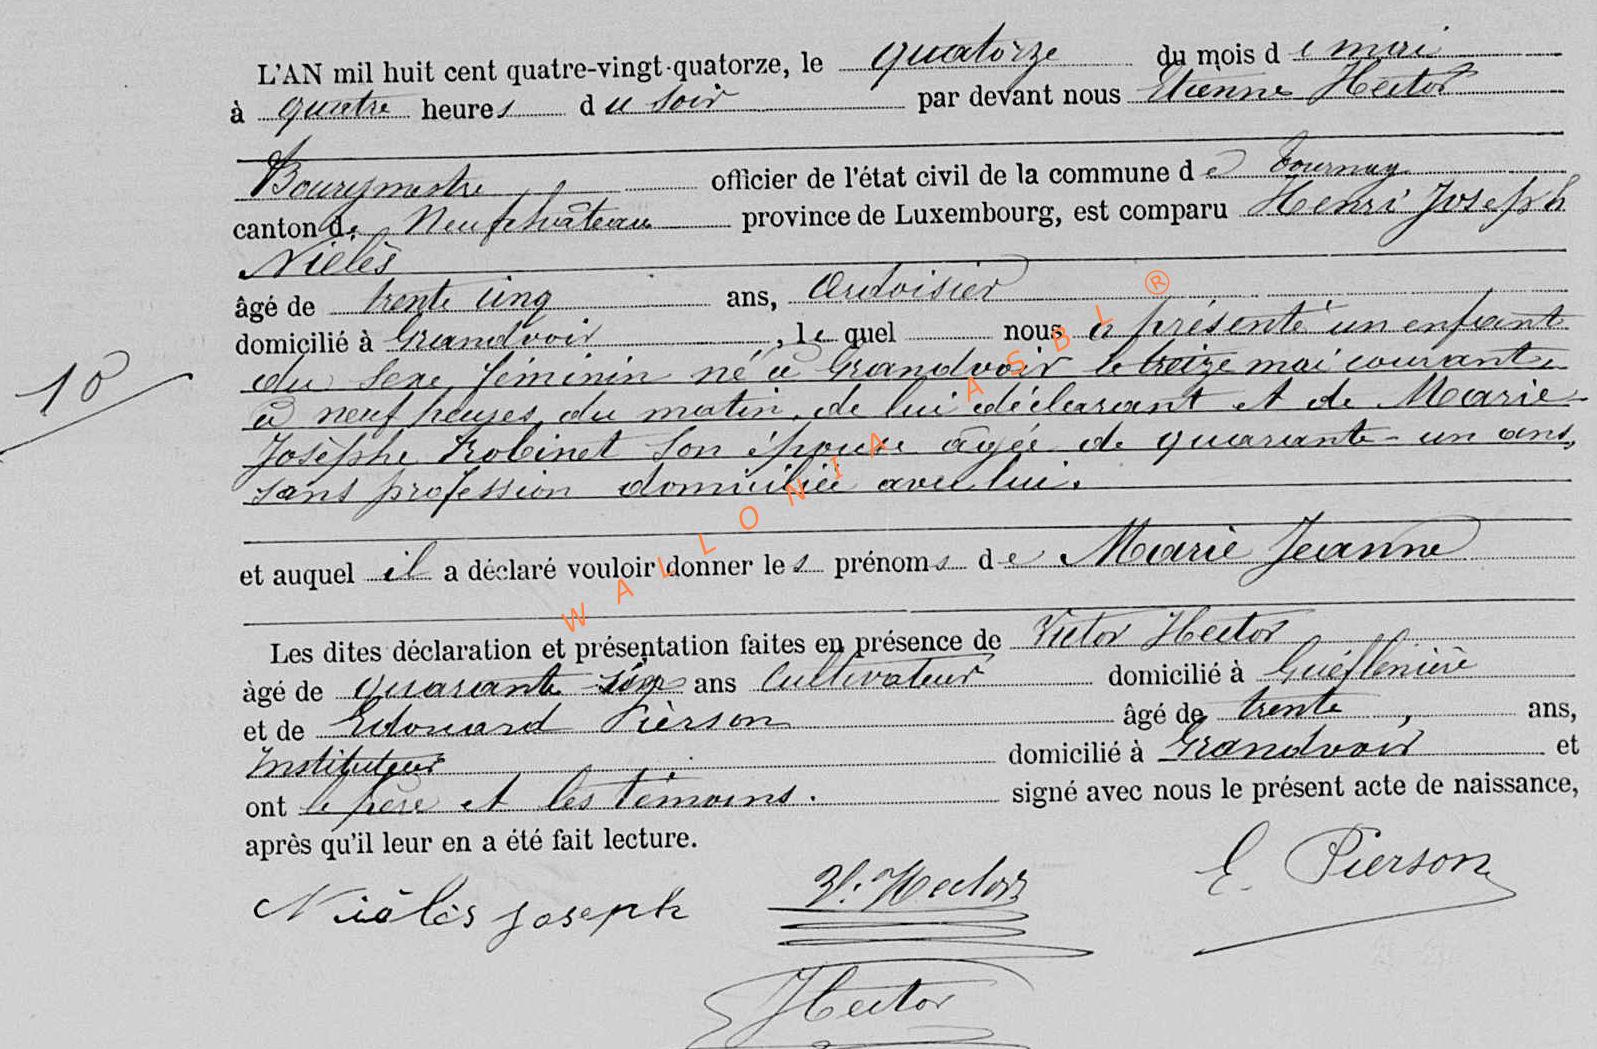 L'AN mil huit cent quatre-vingt-quatorze, le quatorze du mois de mai
à quatre heures du soir par devant nous Etienne Hector
Bourgmestre officier de l'état civil de la commune de Tournay
canton de Neufchâteau province de Luxembourg, est comparu Henri Joseph
Nielès
âgé de trente cinq ans, Ardoisier
domicilié à Grandvoir, lequel nous a présenté un enfant
10
du sexe féminin né à Grandvoir le treize mai courant,
à neuf heures du matin, de lui déclarant et de Marie
Josèphe Robinet son épouse âgée de quarante-un ans,
sans profession domiciliée avec lui.
et auquel il a déclaré vouloir donner les prénoms de Marie Jeanne
Les dites déclaration et présentation faites en présence de Victor Hector
âgé de quarante ans Cultivateur domicilié à
et de Edouard Pierson âgé de trente, ans,
Instituteur domicilié à Grandvoir et
ont le père et les témoins. signé avec nous le présent acte de naissance,
après qu'il leur en a été fait lecture.
Joseph
V. Hector
E. Pierson
Hector
WALLONIA ASBL ®